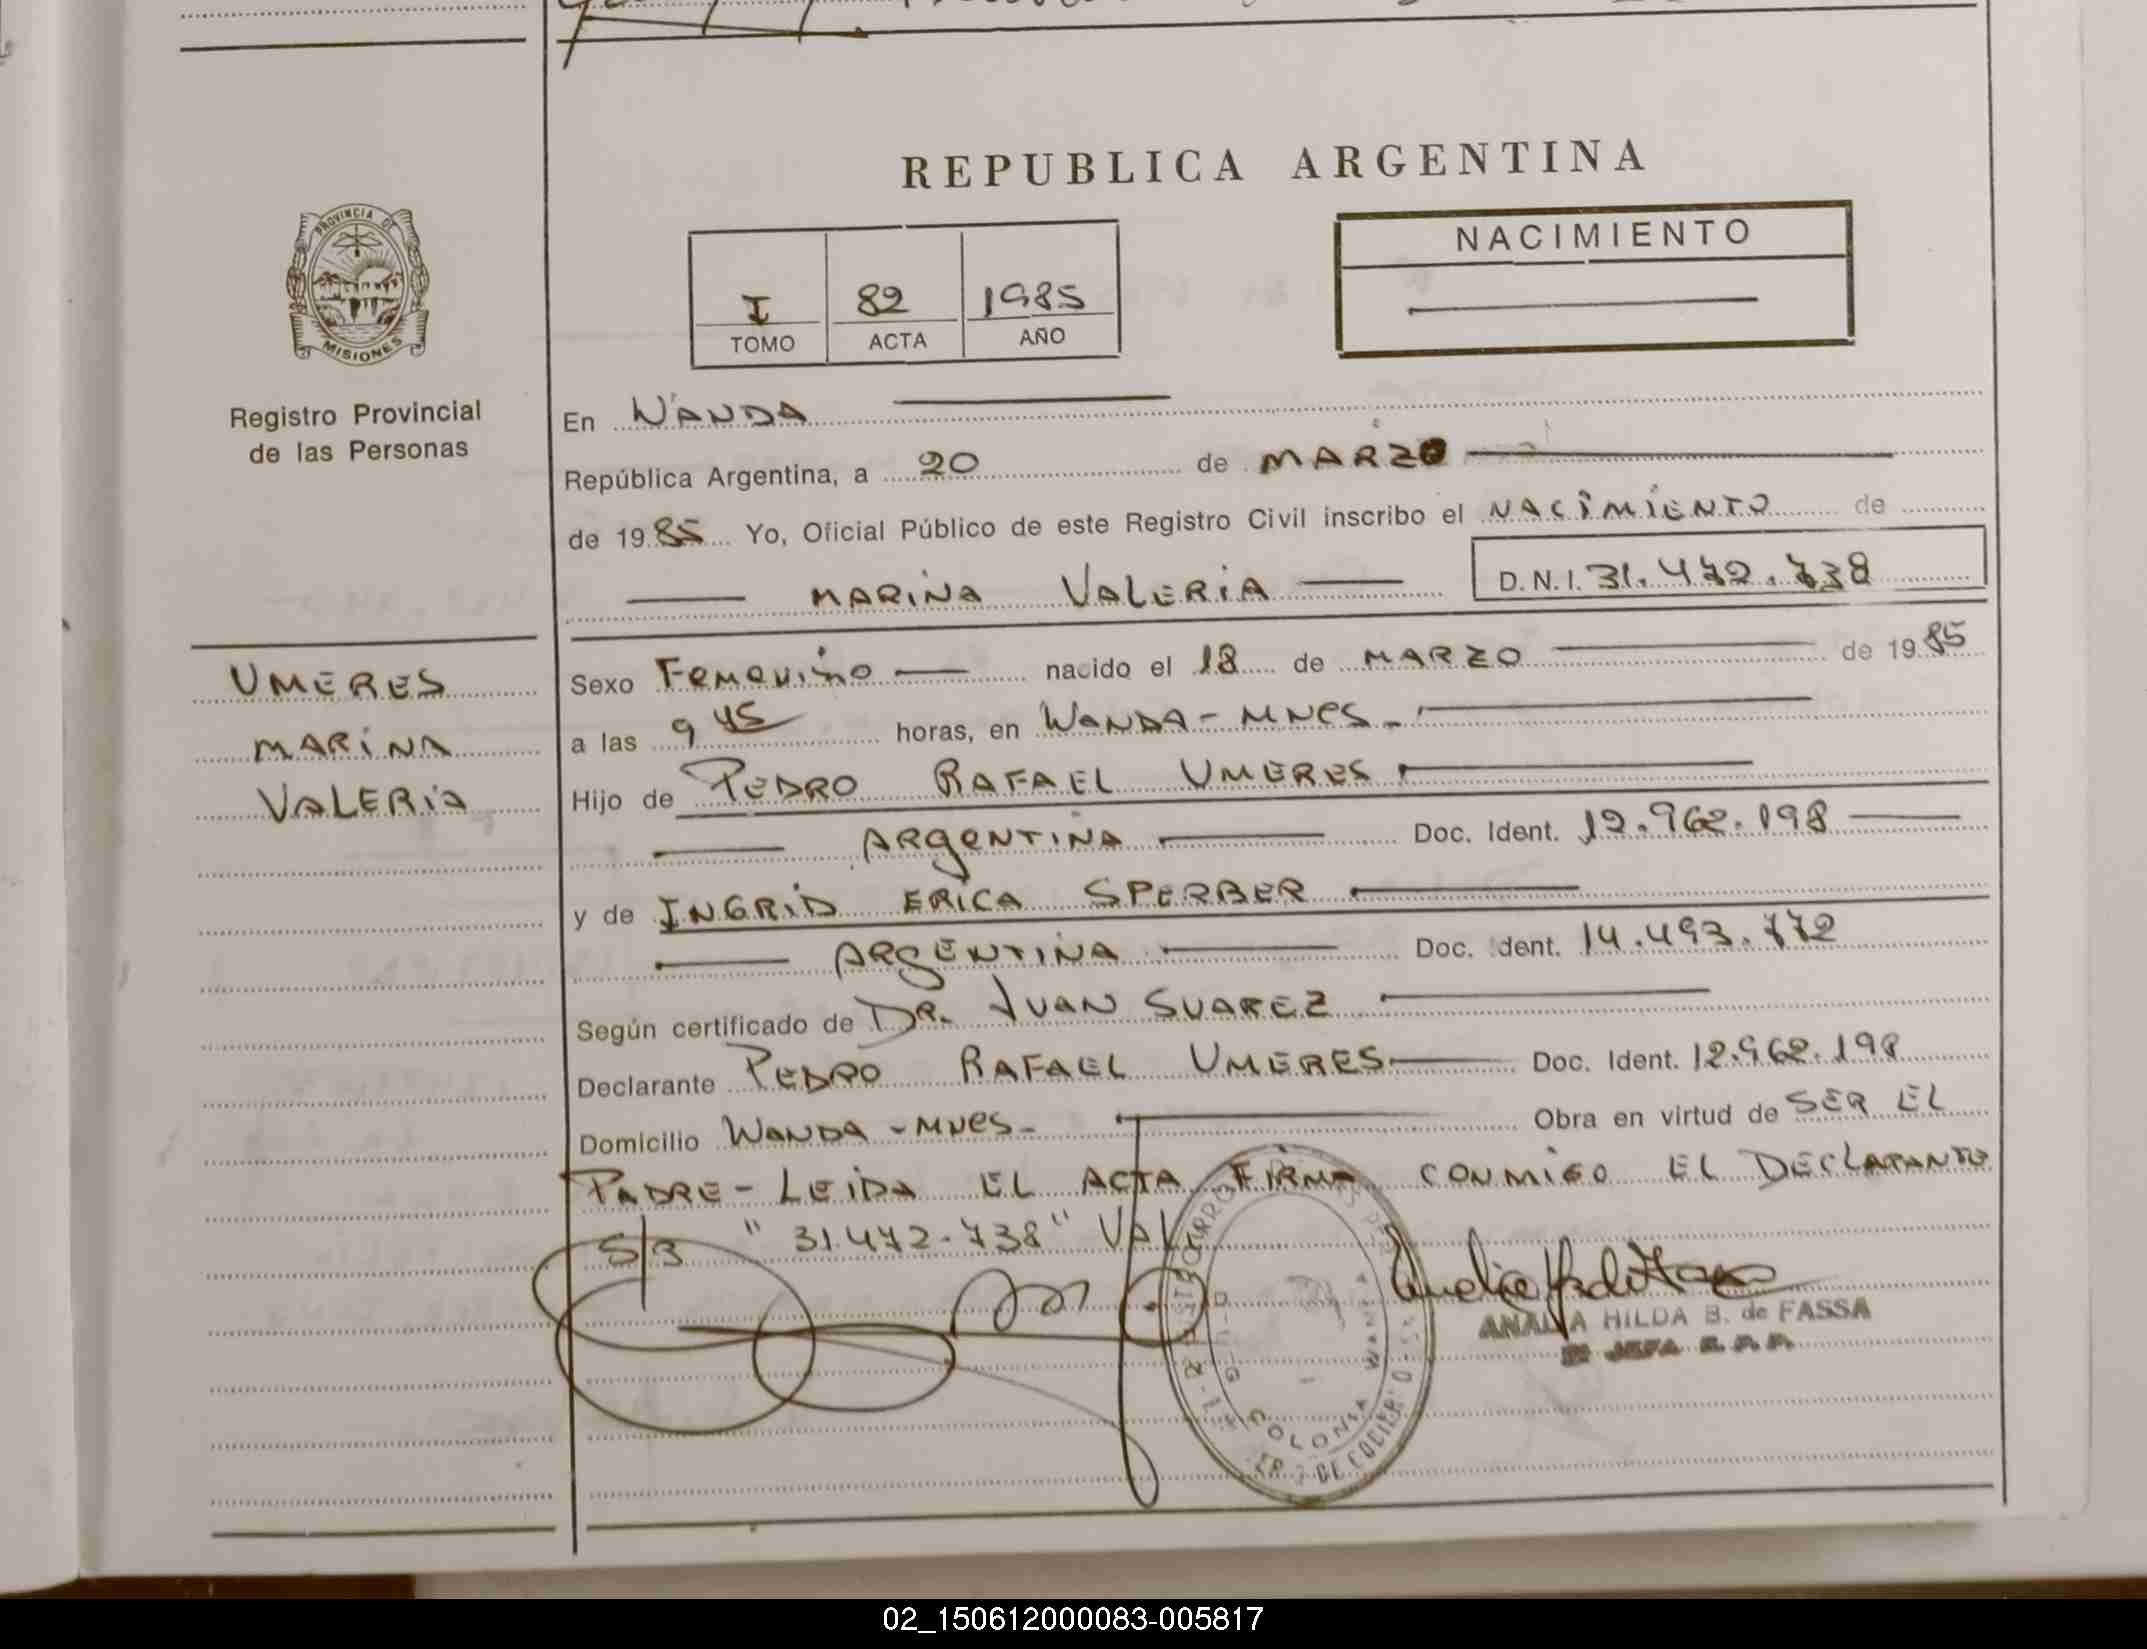 REPUBLICA ARGENTINA
PROVINCIA DE
MISIONES
Registro Provincial
de las Personas
I 82 1985
TOMO ACTA AÑO
NACIMIENTO
En WANDA
República Argentina, a 20 de MARZO
de 1985 Yo, Oficial Público de este Registro Civil inscribo el NACIMIENTO de
MARINA VALERIA D.N.I. 31.472.738
UMERES
MARINA
VALERIA
Sexo Femenino nacido el 18 de MARZO de 1985
a las 9 45 horas, en WANDA - MNES -
Hijo de PEDRO RAFAEL UMERES
ARGENTINA Doc. Ident. 12.962.198
y de INGRID ERICA SPERBER
ARGENTINA Doc. Ident. 14.493.772
Según certificado de DR. JUAN SUAREZ
Declarante PEDRO RAFAEL UMERES Doc. Ident. 12.962.198
Domicilio WANDA - MNES - Obra en virtud de SER EL
PADRE - LEIDA EL ACTA FIRMA CONMIGO EL DECLARANTE
S/B "31.472.738" VAL
ANALIA HILDA B. de FASSA
JEFA R. P. P.
COLONIA WANDA
02_150612000083-005817